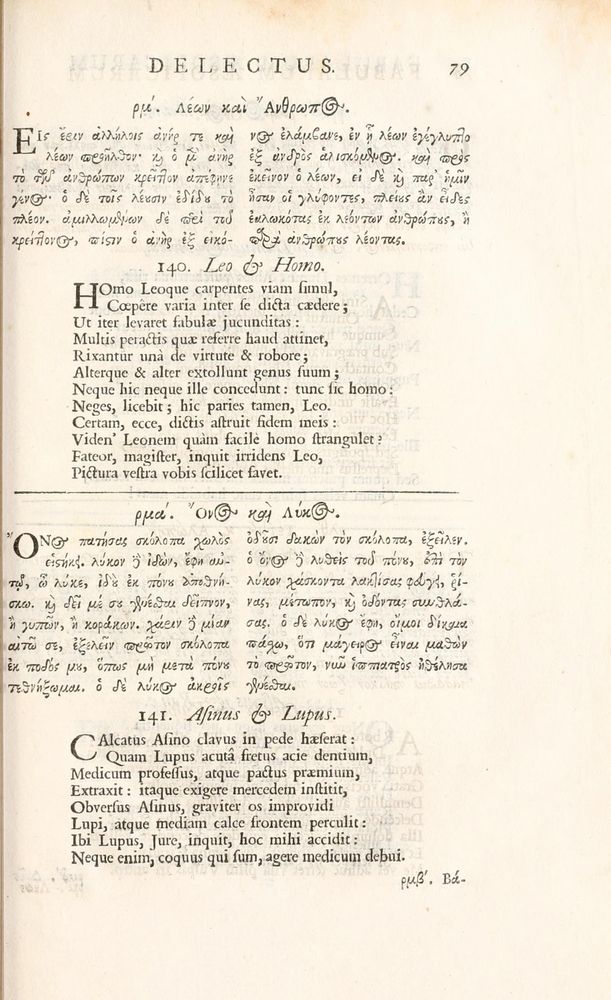 DELECTUS. 79
ρμʹ. Λέων καὶ Ἄνθρωπος.
Εἰς ἔριν ἀλλήλοις ἀνήρ τε καὶ
λέων προῆλθον· καὶ ὁ μὲν ἀνὴρ
τὸ τῶν ἀνθρώπων κρεῖττον ἀπέφηνε
γένος· ὁ δὲ τοῖς λέουσιν ἐδίδου τὸ
πλέον. ἁμιλλωμένων δὲ περὶ τοῦ
κρείττονος, πίστιν ὁ ἀνὴρ ἐξ εἰκό-
νος ἐλάμβανε, ἐν ᾗ λέων ἐγέγλυπτο
ἐξ ἀνδρὸς ἁλισκόμενος. καὶ πρὸς
ἐκεῖνον ὁ λέων, εἰ δὲ καὶ παρ' ἡμῖν
ἦσαν οἱ γλύφοντες, πλείους ἂν εἶδες
ἑαλωκότας ἐκ λεόντων ἀνθρώπους, ἢ
παρὰ ἀνθρώπους λέοντας.
140. Leo & Homo.
HOmo Leoque carpentes viam simul,
Cœpêre varia inter se dicta cædere;
Ut iter levaret fabulæ jucunditas:
Multis peractis quæ referre haud attinet,
Rixantur unà de virtute & robore;
Alterque & alter extollunt genus suum;
Neque hic neque ille concedunt: tunc sic homo:
Neges, licebit; hic paries tamen, Leo.
Certam, ecce, dictis astruit fidem meis:
Viden' Leonem quàm facilè homo strangulet?
Fateor, magister, inquit irridens Leo,
Pictura vestra vobis scilicet favet.
ρμαʹ. Ὄνος καὶ Λύκος.
ὌΝος πατήσας σκόλοπα χωλὸς
εἱστήκει. λύκον δ' ἰδὼν, ἔφη αὐ-
τῷ, ὦ λύκε, ἰδοὺ ἐκ πόνου ἀποθνή-
σκω. καὶ δεῖ με σοῦ γενέσθαι δεῖπνον,
ἢ γυπῶν, ἢ κοράκων. χάριν δ' μίαν
αἰτῶ σε, ἐξελεῖν πρῶτον σκόλοπα
ἐκ ποδός μου, ὅπως μὴ μετὰ πόνου
τεθνήξωμαι. ὁ δὲ λύκος ἄκροις
ὀδοῦσι δακὼν τὸν σκόλοπα, ἐξεῖλεν.
ὁ ὄνος δ' λυθεὶς τοῦ πόνου, ἐπὶ τὸν
λύκον χάσκοντα λακτίσας φεύγει, ῥί-
νας, μέτωπον, καὶ ὀδόντας συνθλά-
σας. ὁ δὲ λύκος ἔφη, οἴμοι δίκαια
πάσχω, ὅτι μάγειρος εἶναι μαθὼν
τὸ πρῶτον, νῦν ἱππιατρὸς ἠθέλησα
γενέσθαι.
141. Asinus & Lupus.
CAlcatus Asino clavus in pede hæserat:
Quam Lupus acutâ fretus acie dentium,
Medicum professus, atque pactus præmium,
Extraxit: itaque exigere mercedem institit,
Obversus Asinus, graviter os improvidi
Lupi, atque mediam calce frontem perculit:
Ibi Lupus, Jure, inquit, hoc mihi accidit:
Neque enim, coquus qui sum, agere medicum debui.
ρμβʹ. Βά-